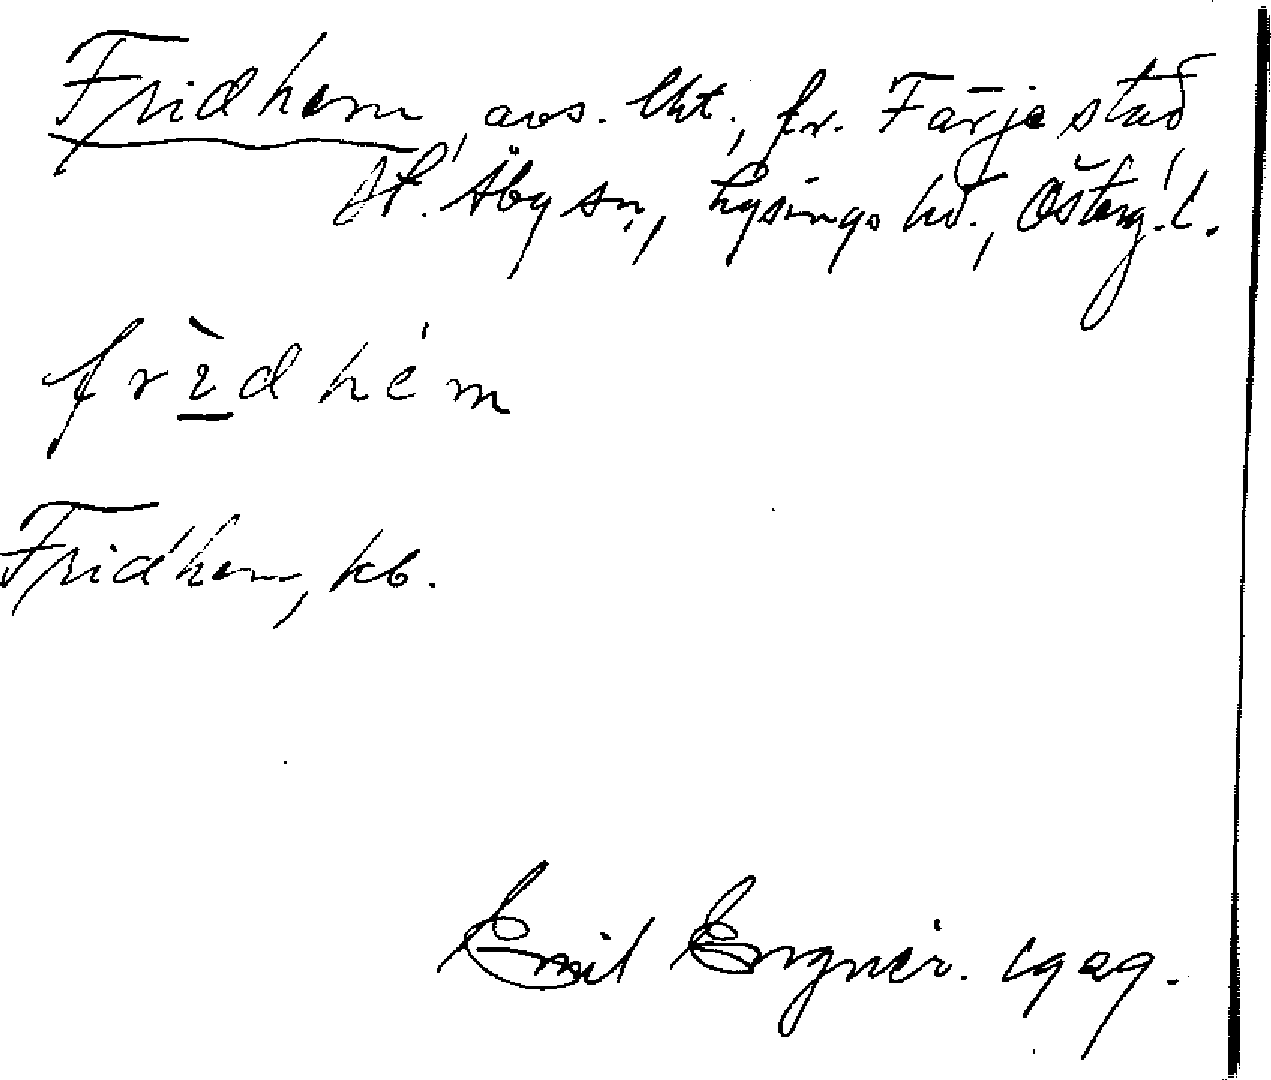 Fridhem, avs. lht., fr. Färjestad
H. Åby sn, Lysings hd., Österg. l.
frìdhém
Fridhem, kb.
Emil 1929.